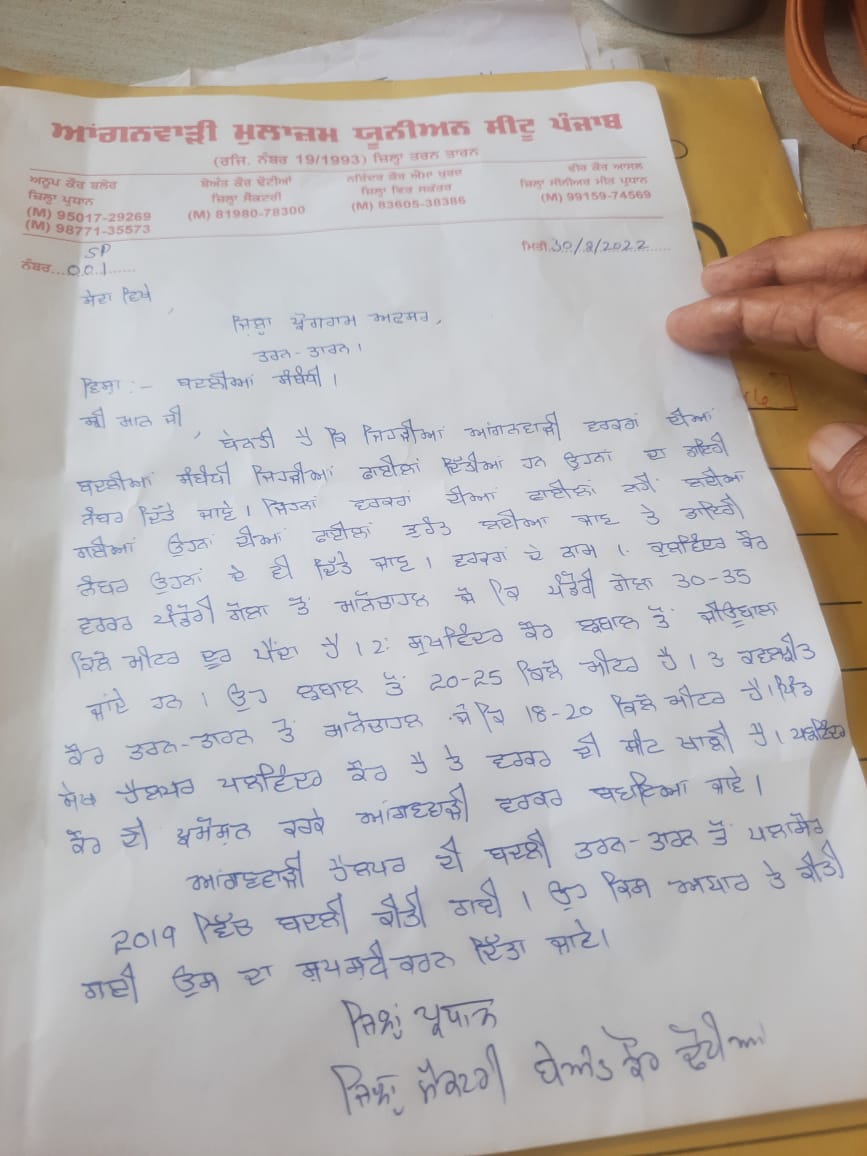 ਆਂਗਨਵਾੜੀ ਮੁਲਾਜ਼ਮ ਯੂਨੀਅਨ ਸੀਟੂ ਪੰਜਾਬ
(ਰਜਿ. ਨੰਬਰ 19/1993) ਜ਼ਿਲ੍ਹਾ ਤਰਨ ਤਾਰਨ
ਅਨੂਪ ਕੌਰ ਬਲੇਰ
ਜ਼ਿਲ੍ਹਾ ਪ੍ਰਧਾਨ
(M) 95017-29269
(M) 98771-35573
ਬੇਅੰਤ ਕੌਰ ਢੋਟੀਆਂ
ਜ਼ਿਲ੍ਹਾ ਸੈਕਟਰੀ
(M) 81980-78300
ਨਜਿੰਦਰ ਕੌਰ ਐਮਾ ਖੁਰਦ
ਜ਼ਿਲ੍ਹਾ ਵਿਤ ਸਕੱਤਰ
(M) 83605-38386
ਵੀਰ ਕੌਰ ਆਸਲ
ਜ਼ਿਲ੍ਹਾ ਸੀਨੀਅਰ ਮੀਤ ਪ੍ਰਧਾਨ
(M) 99159-74569
SP
ਨੰਬਰ...001......
ਮਿਤੀ 30/8/2022
ਸੇਵਾ ਵਿਖੇ,
ਜ਼ਿਲ੍ਹਾ ਪ੍ਰੋਗਰਾਮ ਅਫਸਰ,
ਤਰਨ-ਤਾਰਨ।
ਵਿਸ਼ਾ :- ਬਦਲੀਆਂ ਸੰਬੰਧੀ।
ਸ੍ਰੀ ਮਾਨ ਜੀ,
ਬੇਨਤੀ ਹੈ ਕਿ ਜਿਹੜੀਆਂ ਆਂਗਨਵਾੜੀ ਵਰਕਰਾਂ ਦੀਆਂ
ਬਦਲੀਆਂ ਸੰਬੰਧੀ ਜਿਹੜੀਆਂ ਫਾਈਲਾਂ ਦਿੱਤੀਆਂ ਹਨ ਉਹਨਾਂ ਦਾ ਡਾਇਰੀ
ਨੰਬਰ ਦਿੱਤੇ ਜਾਵੇ। ਜਿਹਨਾਂ ਵਰਕਰਾਂ ਦੀਆਂ ਫਾਈਲਾਂ ਨਹੀਂ ਲਈਆਂ
ਗਈਆਂ ਉਹਨਾਂ ਦੀਆਂ ਫਾਈਲਾਂ ਤੁਰੰਤ ਲਈਆ ਜਾਣ ਤੇ ਡਾਇਰੀ
ਨੰਬਰ ਉਹਨਾਂ ਦੇ ਵੀ ਦਿੱਤੇ ਜਾਣ। ਵਰਕਰਾਂ ਦੇ ਨਾਮ 1. ਕੁਲਵਿੰਦਰ ਕੌਰ
ਵਰਕਰ ਪੰਡੋਰੀ ਗੋਲਾ ਤੋਂ ਮਾਨੋਚਾਹਲ ਜੋ ਕਿ ਪੰਡੋਰੀ ਗੋਲਾ 30-35
ਕਿਲੋ ਮੀਟਰ ਦੂਰ ਪੈਂਦਾ ਹੈ। 2: ਸੁਖਵਿੰਦਰ ਕੌਰ ਤੋਂ
ਜਾਂਦੇ ਹਨ। ਉਹ ਤੋਂ 20-25 ਕਿਲੋ ਮੀਟਰ ਹੈ। 3
ਕੌਰ ਤਰਨ-ਤਾਰਨ ਤੋਂ ਮਾਨੋਚਾਹਲ ਜੋ ਕਿ 18-20 ਕਿਲੋ ਮੀਟਰ ਹੈ। ਪਿੰਡ
ਸੇਖ ਹੈਲਪਰ ਪਲਵਿੰਦਰ ਕੌਰ ਹੈ ਤੇ ਵਰਕਰ ਦੀ ਸੀਟ ਖਾਲੀ ਹੈ। ਪਲਵਿੰਦਰ
ਕੌਰ ਦੀ ਪ੍ਰਮੋਸ਼ਨ ਕਰਕੇ ਆਂਗਣਵਾੜੀ ਵਰਕਰ ਬਣਾਇਆ ਜਾਵੇ।
ਆਂਗਣਵਾੜੀ ਹੈਲਪਰ ਦੀ ਬਦਲੀ ਤਰਨ-ਤਾਰਨ ਤੋਂ ਪਲਾਸੌਰ
2019 ਵਿੱਚ ਬਦਲੀ ਕੀਤੀ ਗਈ। ਉਹ ਕਿਸ ਅਧਾਰ ਤੇ ਕੀਤੀ
ਗਈ ਉਸ ਦਾ ਸਪਸ਼ਟੀਕਰਨ ਦਿੱਤਾ ਜਾਵੇ।
ਜ਼ਿਲ੍ਹਾ ਪ੍ਰਧਾਨ
ਜ਼ਿਲ੍ਹਾ ਸੈਕਟਰੀ ਬੇਅੰਤ ਕੌਰ ਢੋਟੀਆਂ